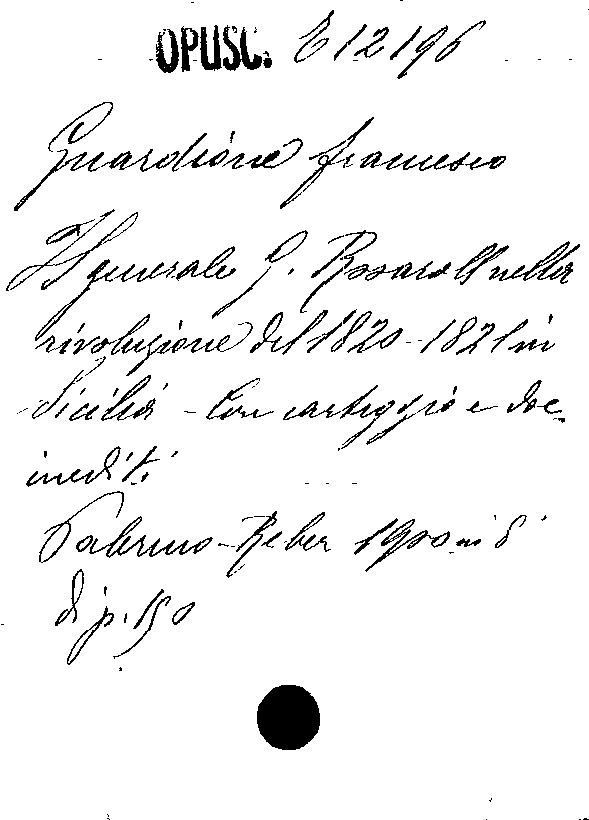 OPUSC. E 12196
Guardione Francesco
Il generale G. Rossaroll nella
rivoluzione del 1820-1821 in
Sicilia - Con carteggio e doc.
inediti
Palermo - Reber 1900 in 8°
di p. 150